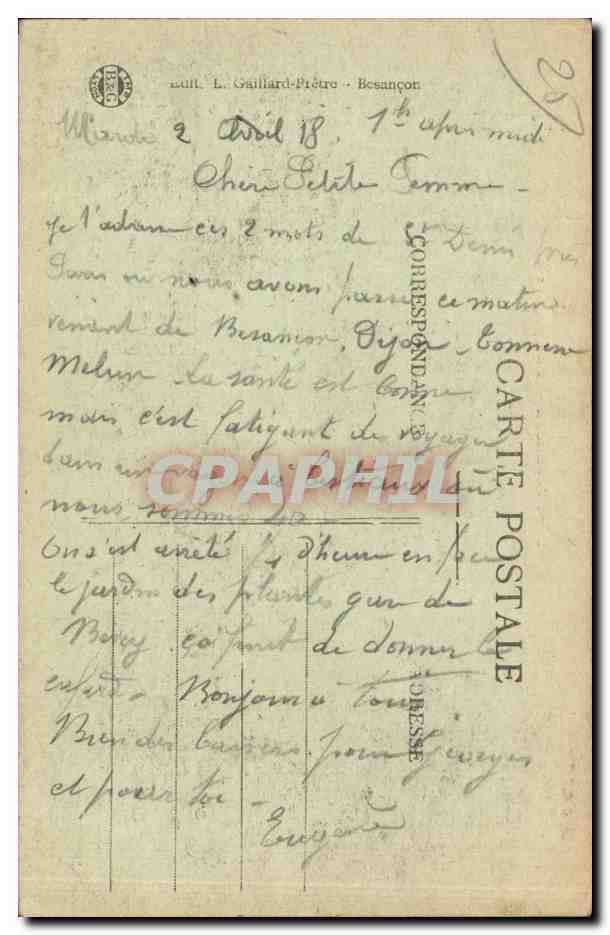 Edit. L. Gaillard-Prêtre - Besançon
B&C
20
Mardi 2 Avril 18. 1h après midi
Chère Petite Femme -
je t'adresse ces 2 mots de St Denis près
Paris où nous avons passé ce matin
venant de Besançon, Dijon, Tonnerre
Melun. La santé est bonne
mais c'est fatigant de voyager
dans un wagon à bestiaux où
nous sommes 40
On s'est arrêté 1/4 d'heure en face
le jardin des plantes gare de
Bercy ça finit de donner le
cafard. Bonjour à tous
Bien des baisers pour Georges
et pour toi -
Eugène
CORRESPONDANCE
CARTE POSTALE
ADRESSE
CPAPHIL